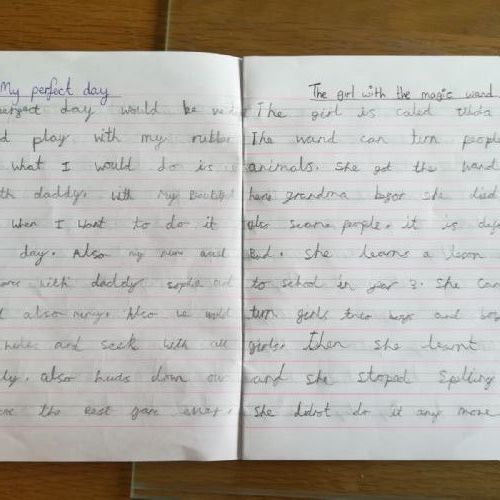 My perfect day
perfect day would be
play with my rubber
what I would do is
with daddy. with my Beautiful
when I want to do it
day. Also my mum and
with daddy sophie and
also . Also we would
hide and seek with all
. also down our
the est game ever.
The girl with the magic wand.
The girl is caled
The wand can turn people
animals. She got the wand
grandma befor she died
also scares people. it is
Bad. She learns a leson
to school in year 3. She can
turn girls into boys and boy
girls. Then she learnt
and she stoped Spelling
She didnt do it any more